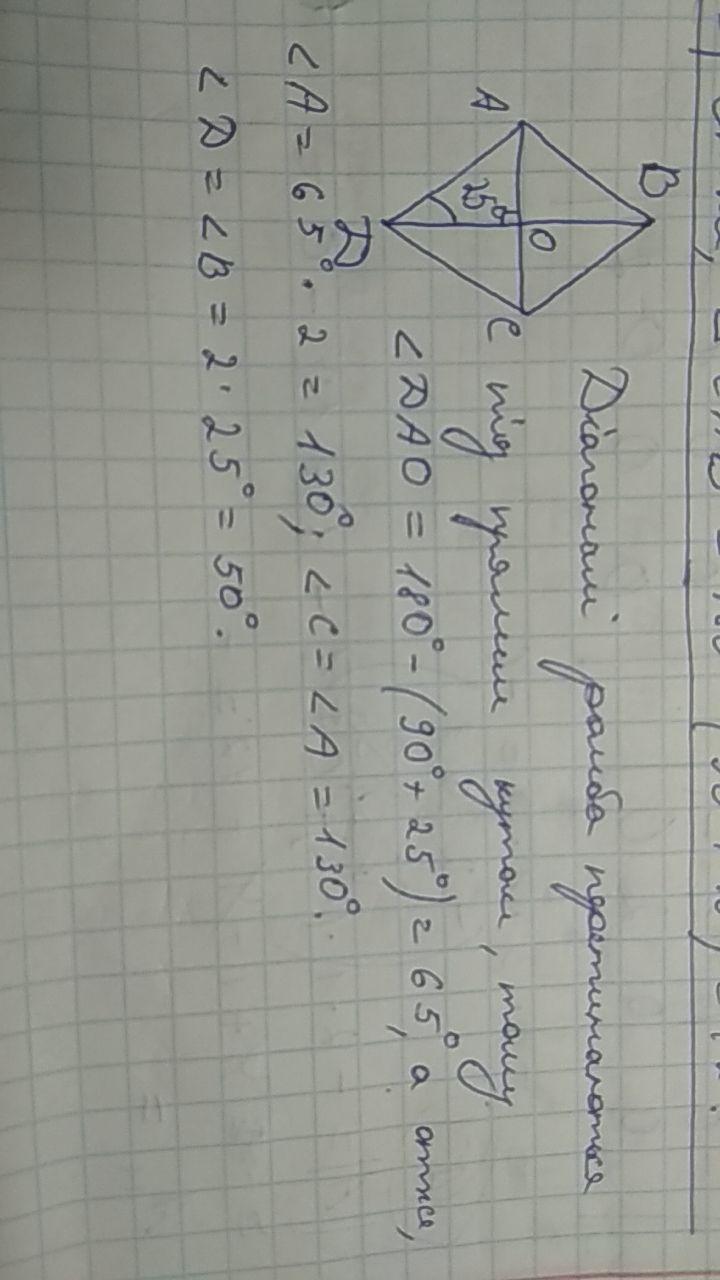 B
A
25°
O
C
D
Діагоналі ромба перетинаються
під прямим кутом, тому
∠DAO = 180° - (90° + 25°) = 65°, а отже,
∠A = 65° · 2 = 130°; ∠C = ∠A = 130°.
∠D = ∠B = 2 · 25° = 50°.